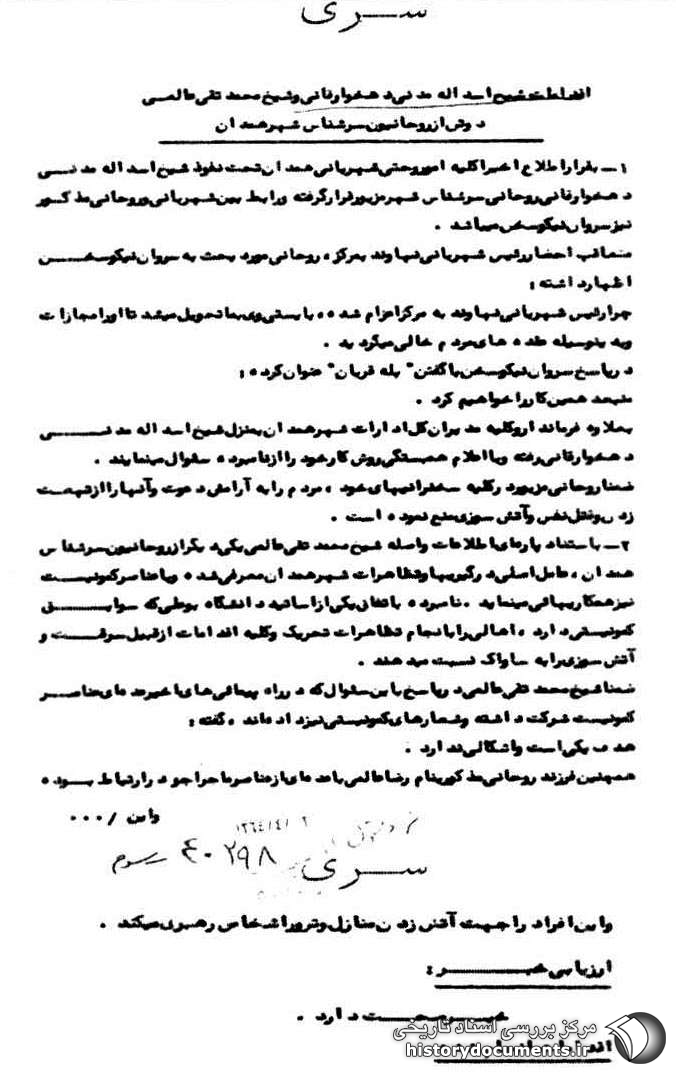 ســری
اقدامات شیخ اسد اله مدنی دهخوارقانی و شیخ محمد تقی عالمی
دو تن از روحانیون سرشناس شهر همدان
۱ــ بقرار اطلاع اخیرا کلیه امور حتی شهربانی همدان تحت نفوذ شیخ اسد اله مدنی
دهخوارقانی روحانی سرشناس شهر مزبور قرار گرفته و رابط بین شهربانی و روحانی مذکور
نیز سروان نیکوسخن میباشد .
متعاقب احضار رئیس شهربانی نهاوند به مرکز ، روحانی مورد بحث به سروان نیکوسخن
اظهار داشته :
چرا رئیس شهربانی نهاوند به مرکز اعزام شده ، بایستی وی بما تحویل میشد تا او را مجازات
و بدینوسیله عقده های مردم خالی میگردید .
در پاسخ سروان نیکوسخن با گفتن " بله قربان " عنوان کرده :
منبعد همین کار را خواهیم کرد .
بعلاوه فرماندار و کلیه مدیران کل ادارات شهر همدان بمنزل شیخ اسد اله مدنی
دهخوارقانی رفته و با اعلام همبستگی روش کار خود را از نامبرده سئوال مینمایند .
ضمنا روحانی مزبور در کلیه سخنرانیهای خود ، مردم را به آرامش دعوت و آنها را از تهمت
زدن و قتل نفس و آتش سوزی منع نموده است .
۲ــ باستناد پاره‌ای اطلاعات واصله شیخ محمد تقی عالمی یکی دیگر از روحانیون سرشناس
همدان ، عامل اصلی درگیریها و تظاهرات شهر همدان معرفی شده و با عناصر کمونیست
نیز همکاریهائی مینماید . نامبرده باتفاق یکی از اساتید دانشگاه بوعلی که سوابق
کمونیستی دارد ، اهالی را بانجام تظاهرات تحریک و کلیه اقدامات از قبیل سرقت و
آتش سوزی را به ساواک نسبت میدهند .
ضمنا شیخ محمد تقی عالمی در پاسخ باین سئوال که در راه پیمائی های اخیر عده‌ای عناصر
کمونیست شرکت داشته و شعارهای کمونیستی نیز داده‌اند ، گفته :
هدف یکی است و اشکالی ندارد .
همچنین فرزند روحانی مذکور بنام رضا عالمی با عده‌ای از عناصر ماجراجو در ارتباط بوده
و این /۰۰۰
ســری
۴۰۲۹۸
و این افراد را جهت آتش زدن منازل و ترور اشخاص رهبری میکند .
ارزیابی خبـــر :
خبر صحت دارد .
مرکز بررسی اسناد تاریخی
historydocuments.ir